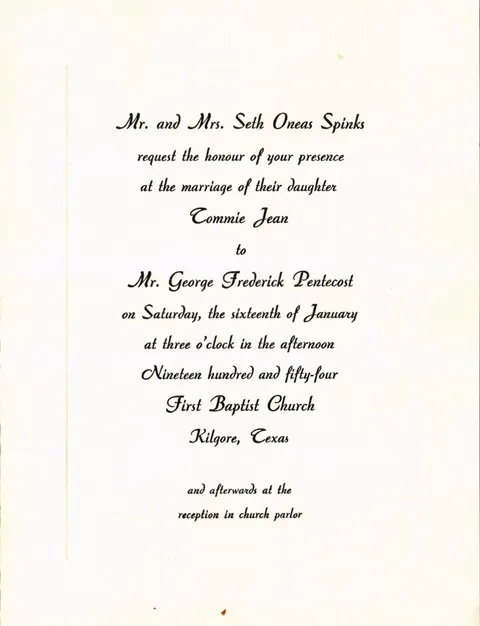 Mr. and Mrs. Seth Oneas Spinks
request the honour of your presence
at the marriage of their daughter
Tommie Jean
to
Mr. George Frederick Pentecost
on Saturday, the sixteenth of January
at three o'clock in the afternoon
Nineteen hundred and fifty-four
First Baptist Church
Kilgore, Texas
and afterwards at the
reception in church parlor